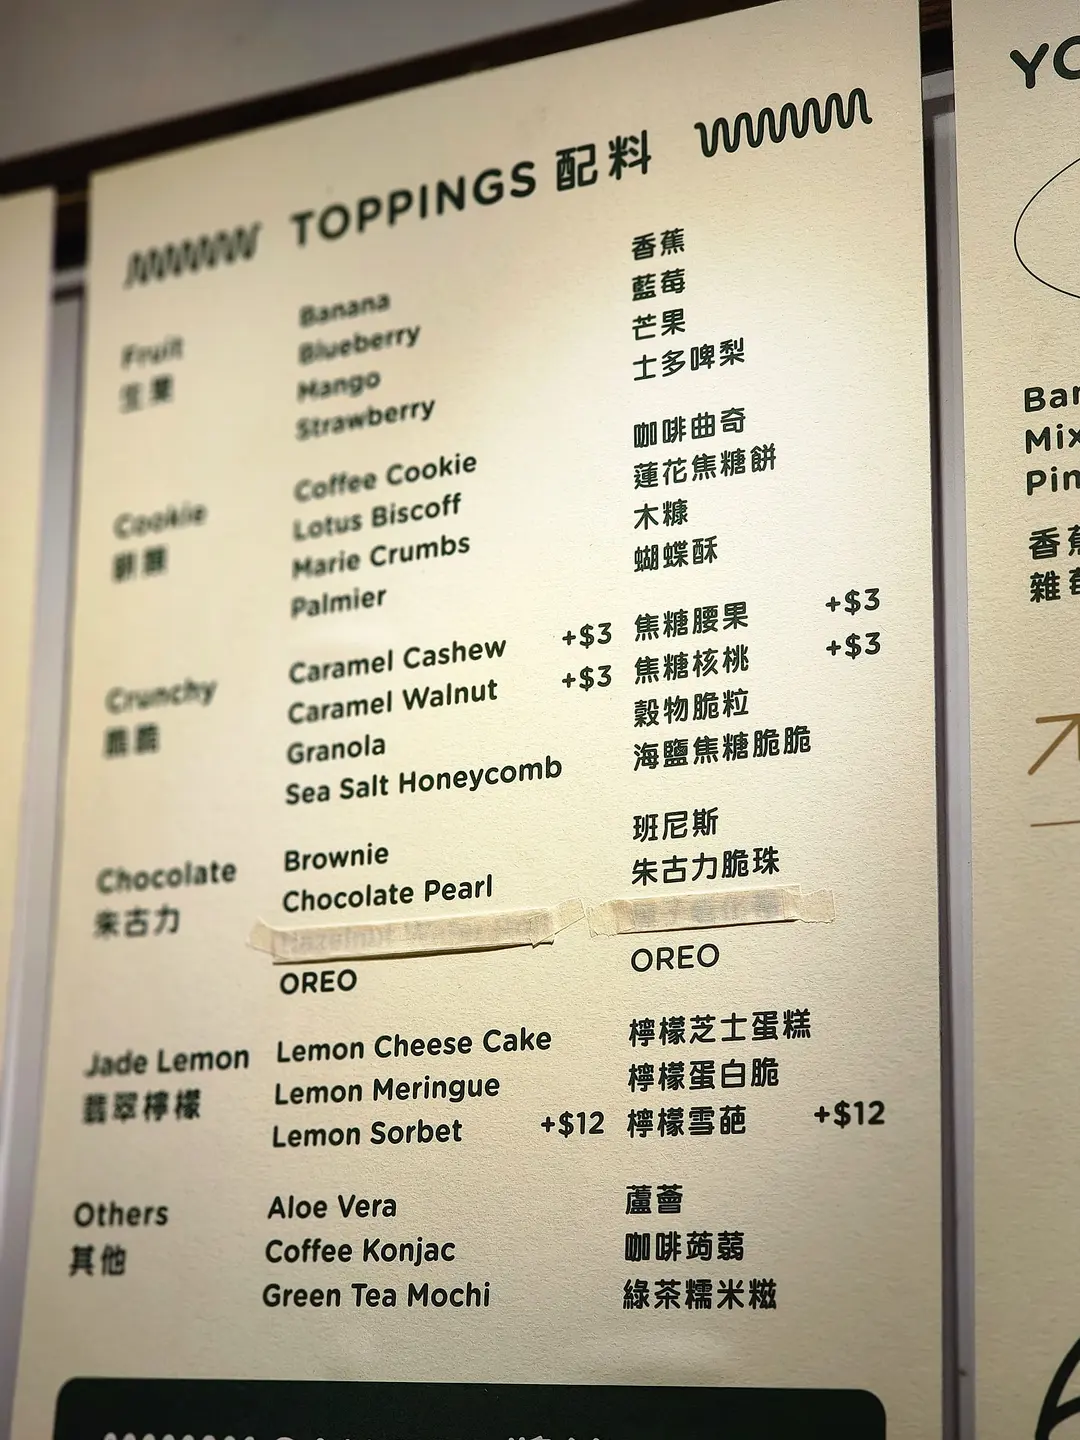 TOPPINGS 配料
Fruit
生果
Banana 香蕉
Blueberry 藍莓
Mango 芒果
Strawberry 士多啤梨
Cookie
餅類
Coffee Cookie 咖啡曲奇
Lotus Biscoff 蓮花焦糖餅
Marie Crumbs 木糠
Palmier 蝴蝶酥
Crunchy
脆脆
Caramel Cashew +$3 焦糖腰果 +$3
Caramel Walnut +$3 焦糖核桃 +$3
Granola 穀物脆粒
Sea Salt Honeycomb 海鹽焦糖脆脆
Chocolate
朱古力
Brownie 班尼斯
Chocolate Pearl 朱古力脆珠
Hazelnut Wafer
OREO OREO
Jade Lemon
翡翠檸檬
Lemon Cheese Cake 檸檬芝士蛋糕
Lemon Meringue 檸檬蛋白脆
Lemon Sorbet +$12 檸檬雪葩 +$12
Others
其他
Aloe Vera 蘆薈
Coffee Konjac 咖啡蒟蒻
Green Tea Mochi 綠茶糯米糍
YO
Ban
Mix
Pin
香蕉
雜莓